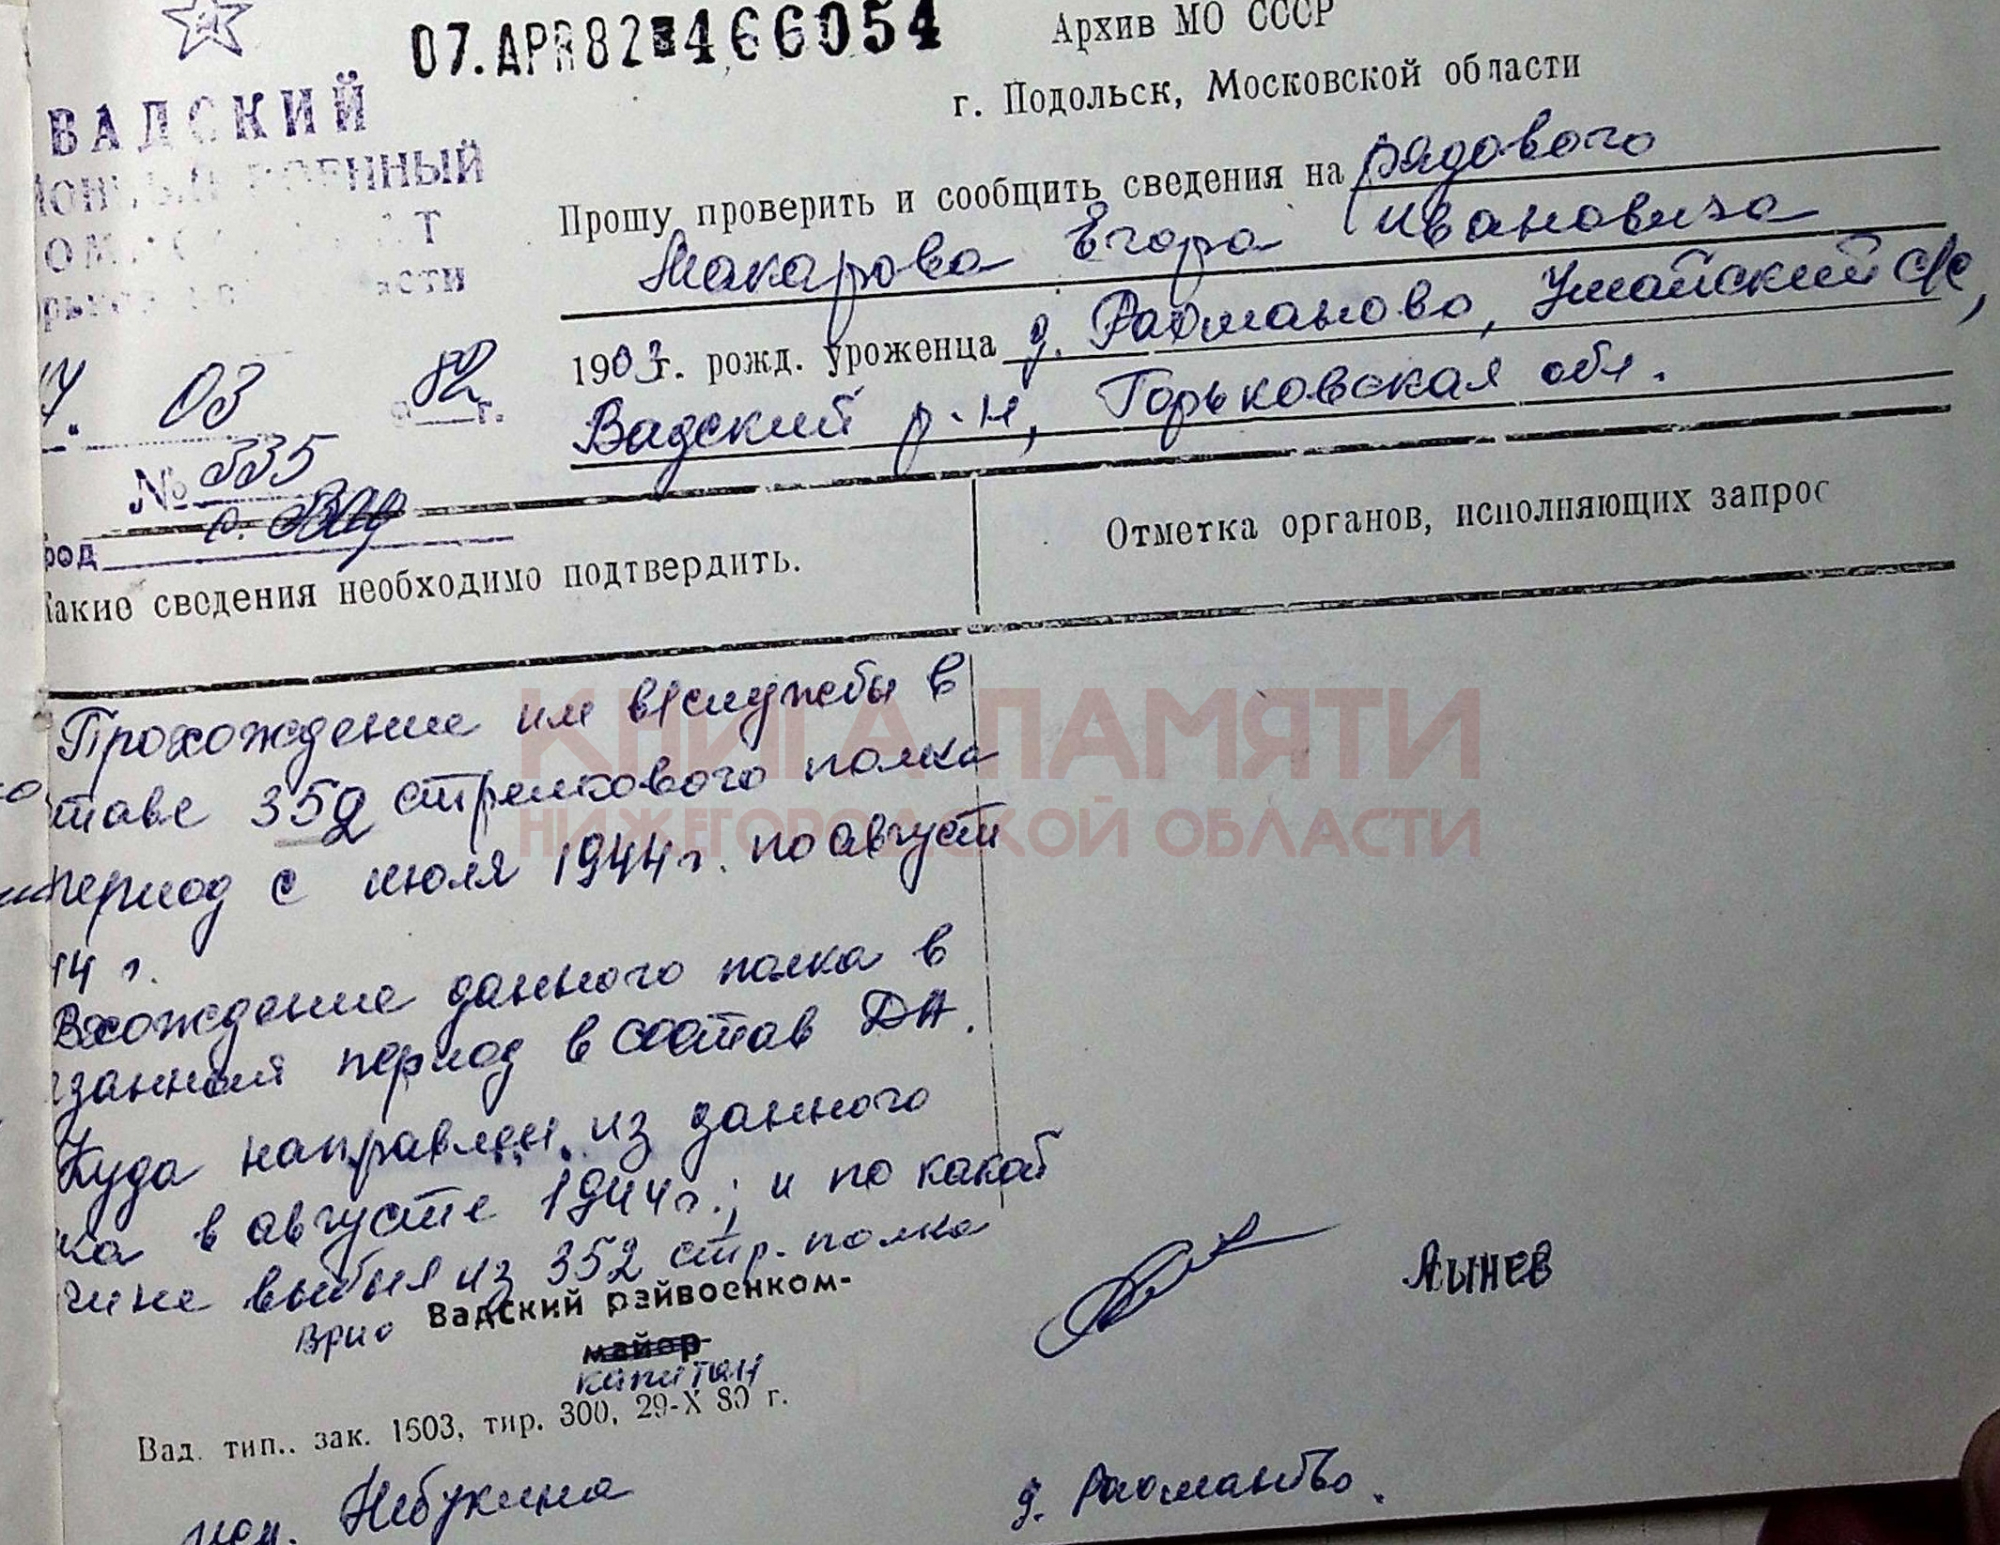 07.APR82 466054
Архив МО СССР
г. Подольск, Московской области
ВАДСКИЙ
ВОЕННЫЙ
Прошу проверить и сообщить сведения на рядового
Макарова Егора Ивановича
1903 г. рожд. уроженца д. Рахманово, Умайский с/с,
Вадский р-н, Горьковская обл.
03 82 г.
№ 335
с. Вад
род
Какие сведения необходимо подтвердить.
Отметка органов, исполняющих запрос
Прохождение им в/службы в
ставе 352 стрелкового полка
период с июля 1944 г. по август
44 г.
Вхождение данного полка в
занный период в состав ДА.
Куда направлен из данного
ка в августе 1944 г.; и по какой
чине выбыл из 352 стр. полка
Врио Вадский райвоенком-
майор
капитан
Лынев
Вад. тип.. зак. 1603, тир. 300, 29-X 80 г.
исп. Небукина
д. Рахманово.
КНИГА ПАМЯТИ
НИЖЕГОРОДСКОЙ ОБЛАСТИ